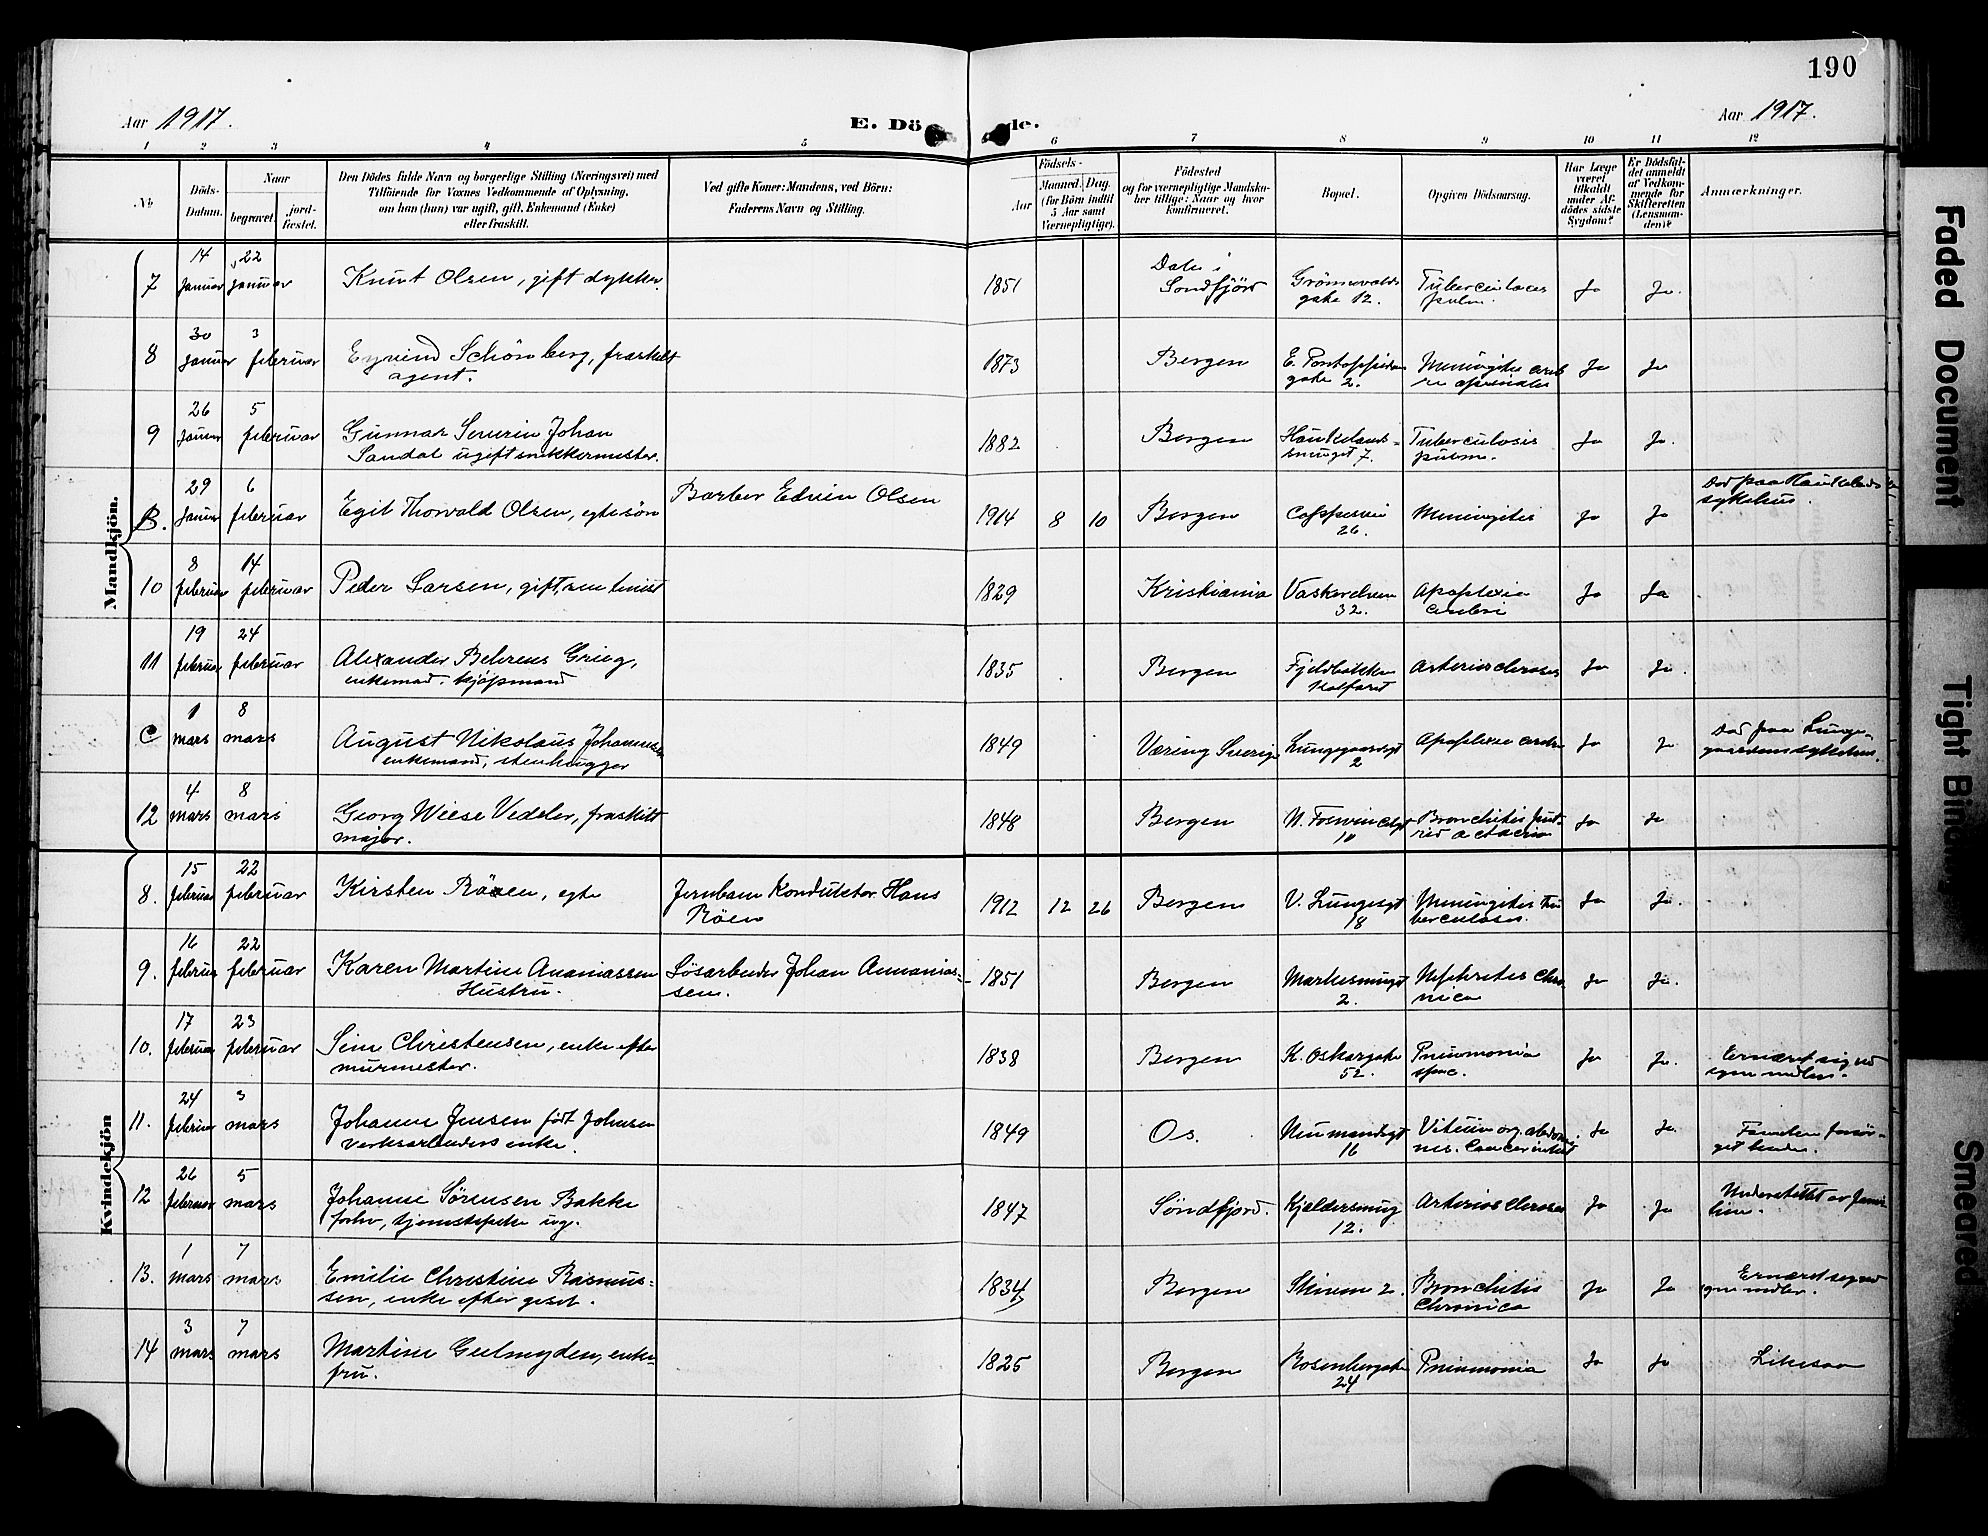 190
Aar 1917.
E. Dö
de.
Aar 1917.
1 2 3 4 5 6 7 8 9 10 11 12
No
Döds-
Datum.
Naar
begravet.
jord-
fæstet.
Den Dödes fulde Navn og borgerlige Stilling (Næringsvei) med
Tilföiende for Voxnes Vedkommende af Oplysning,
om han (hun) var ugift, gift, Enkemand (Enke)
eller fraskilt.
Ved gifte Koner: Mandens, ved Börn:
Faderens Navn og Stilling.
Födsels-
Aar
Maaned. Dag.
(for Börn indtil
5 Aar samt
Værnepligtige).
Födested
og for værnepligtige Mandska-
ber tillige: Naar og hvor
konfirmeret.
Bopæl.
Opgiven Dödsaarsag.
Har Læge
været
tilkaldt
under Af-
dödes sidste
Sygdom?
Er Dödsfal-
det anmeldt
af Vedkom-
mende for
Skifteretten
(Lensman-
den)?
Anmærkninger.
Mandkjön.
7 14 januar 22 januar Knut Olsen, gift dykker. 1851 Dale i Søndfjörd Grønnevolds gate 12. Tuberculoses pulm. Ja Ja.
8 30 januar 3 februar Eyvind Schönberg, fraskilt agent. 1873 Bergen E. Pontoppidans gate 2. Meningitis Ja Ja
9 26 januar 5 februar Gunnar Severin Johan Sandal ugift snekkermester. 1882 Bergen Haukelands- smuget 7. Tuberculosis pulm. Ja Ja.
B. 29 januar 6 februar Egil Thorvald Olsen, egte sön Barber Edvin Olsen 1914 8 10 Bergen 26. Meningitis Ja Ja Død paa Haukelands sykehus.
10 8 februar 14 februar Peder Larsen, gift, 1829 Kristiania 32. Apoplexia cerebri Ja Ja
11 19 februar 24 februar Alexander Behrens Grieg, enkemand. kjøpmand 1835 Bergen Fjeldbakken Kalfaret Arterioscleroses Ja Ja.
C 1 mars 8 mars August Nikolaus Johannesen enkemand, stenhugger 1849 Væring Sverige Lungegaardsgt 2 Apoplexia cerebri Ja Ja Død paa Lunge- gaardens sykehus.
12 4 mars 8 mars Georg Wiese Vedeler, fraskilt major. 1848 Bergen 10 Bronchitis Ja Ja
Kvindekjön
8. 15 februar 22 februar Kirsten Röen, egte Jernbane Konduktør Hans Röen 1912 12 26 Bergen V. Lungegt 18 Meningitis tu berculoses. Ja Ja.
9. 16 februar 22 februar Karen Martine Ananiassen Hustru. Løsarbeider Johan Annanias- sen. 1851 Bergen Markesmuget 2. Nephrites Chro nica Ja Ja.
10. 17 februar 23 februar Sine Christensen, enke efter murmester. 1838 Bergen K. Oskarsgate 52. Pneumonia Ja Ja. Ernæret sig ved egne midler.
11. 24 februar 3 mars Johanne Jensen født Johnsen verksarbeiders enke. 1849 Os. Neumandsgt 16 Vitium org. Ja Ja. Familien forsør- get hende.
12 26 februar 5 mars Johanne Sørensen Bakke forhv. tjenestepike ug. 1847 Søndfjord. Kjeldersmug 12. Arterioscleroses Ja Ja Understøttet av fami lien.
13. 1 mars 7 mars Emilie Christine Rasmus- sen, enke efter gesel. 1834 Bergen Skiven 2. Bronchitis Chronica Ja Ja Ernæret sig ved egne midler.
14 3 mars 7 mars Martine Gulmyden, enke- fru. 1825 Bergen Rosenbergsgt 24 Pneumonia Ja Ja Likesaa
Faded Document
Tight Bin
Smeared